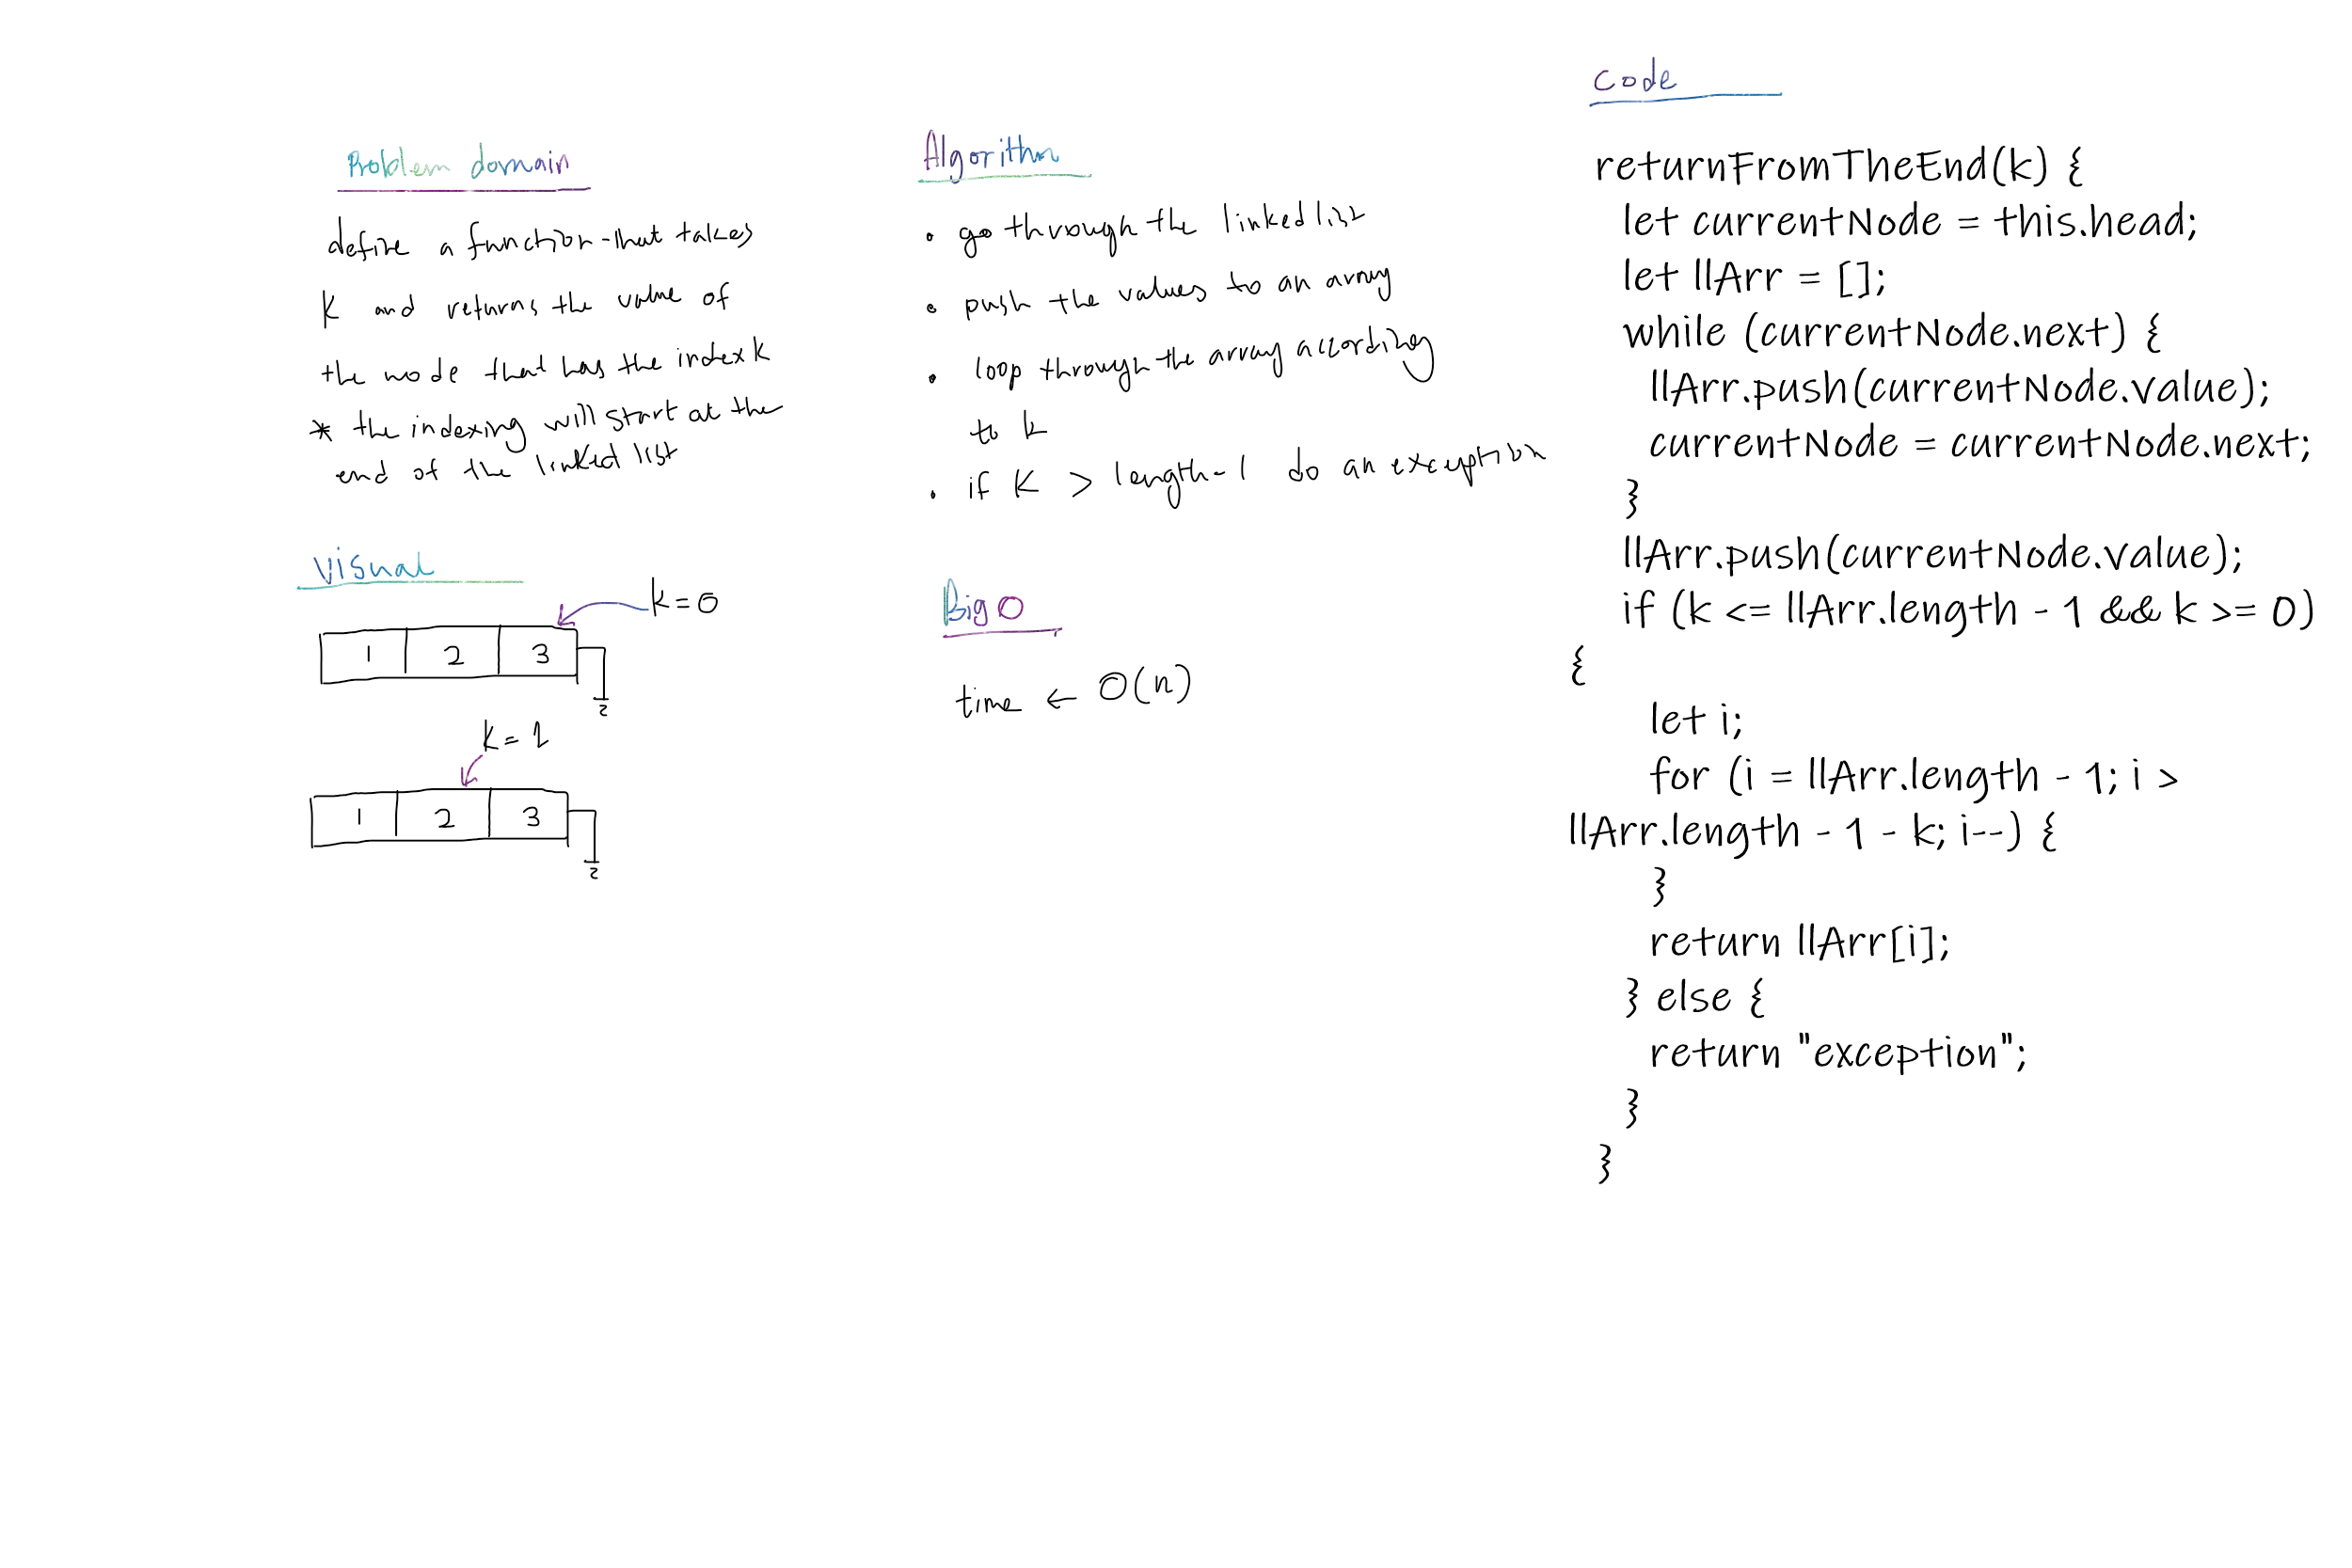 Problem domain
define a function that takes
K and returns the value of
the node that has the index k
* the indexing will start at the
end of the linked list
Visual
k=0
1 2 3
k=1
1 2 3
Algorithm
• go through the linked list
• push the values to an array
• loop through the array according
to k
• if K > length-1 do an exception
Big O
time ← O(n)
Code
returnFromTheEnd(k) {
let currentNode = this.head;
let llArr = [];
while (currentNode.next) {
llArr.push(currentNode.value);
currentNode = currentNode.next;
}
llArr.push(currentNode.value);
if (k <= llArr.length - 1 && k >= 0)
{
let i;
for (i = llArr.length - 1; i >
llArr.length - 1 - k; i--) {
}
return llArr[i];
} else {
return "exception";
}
}